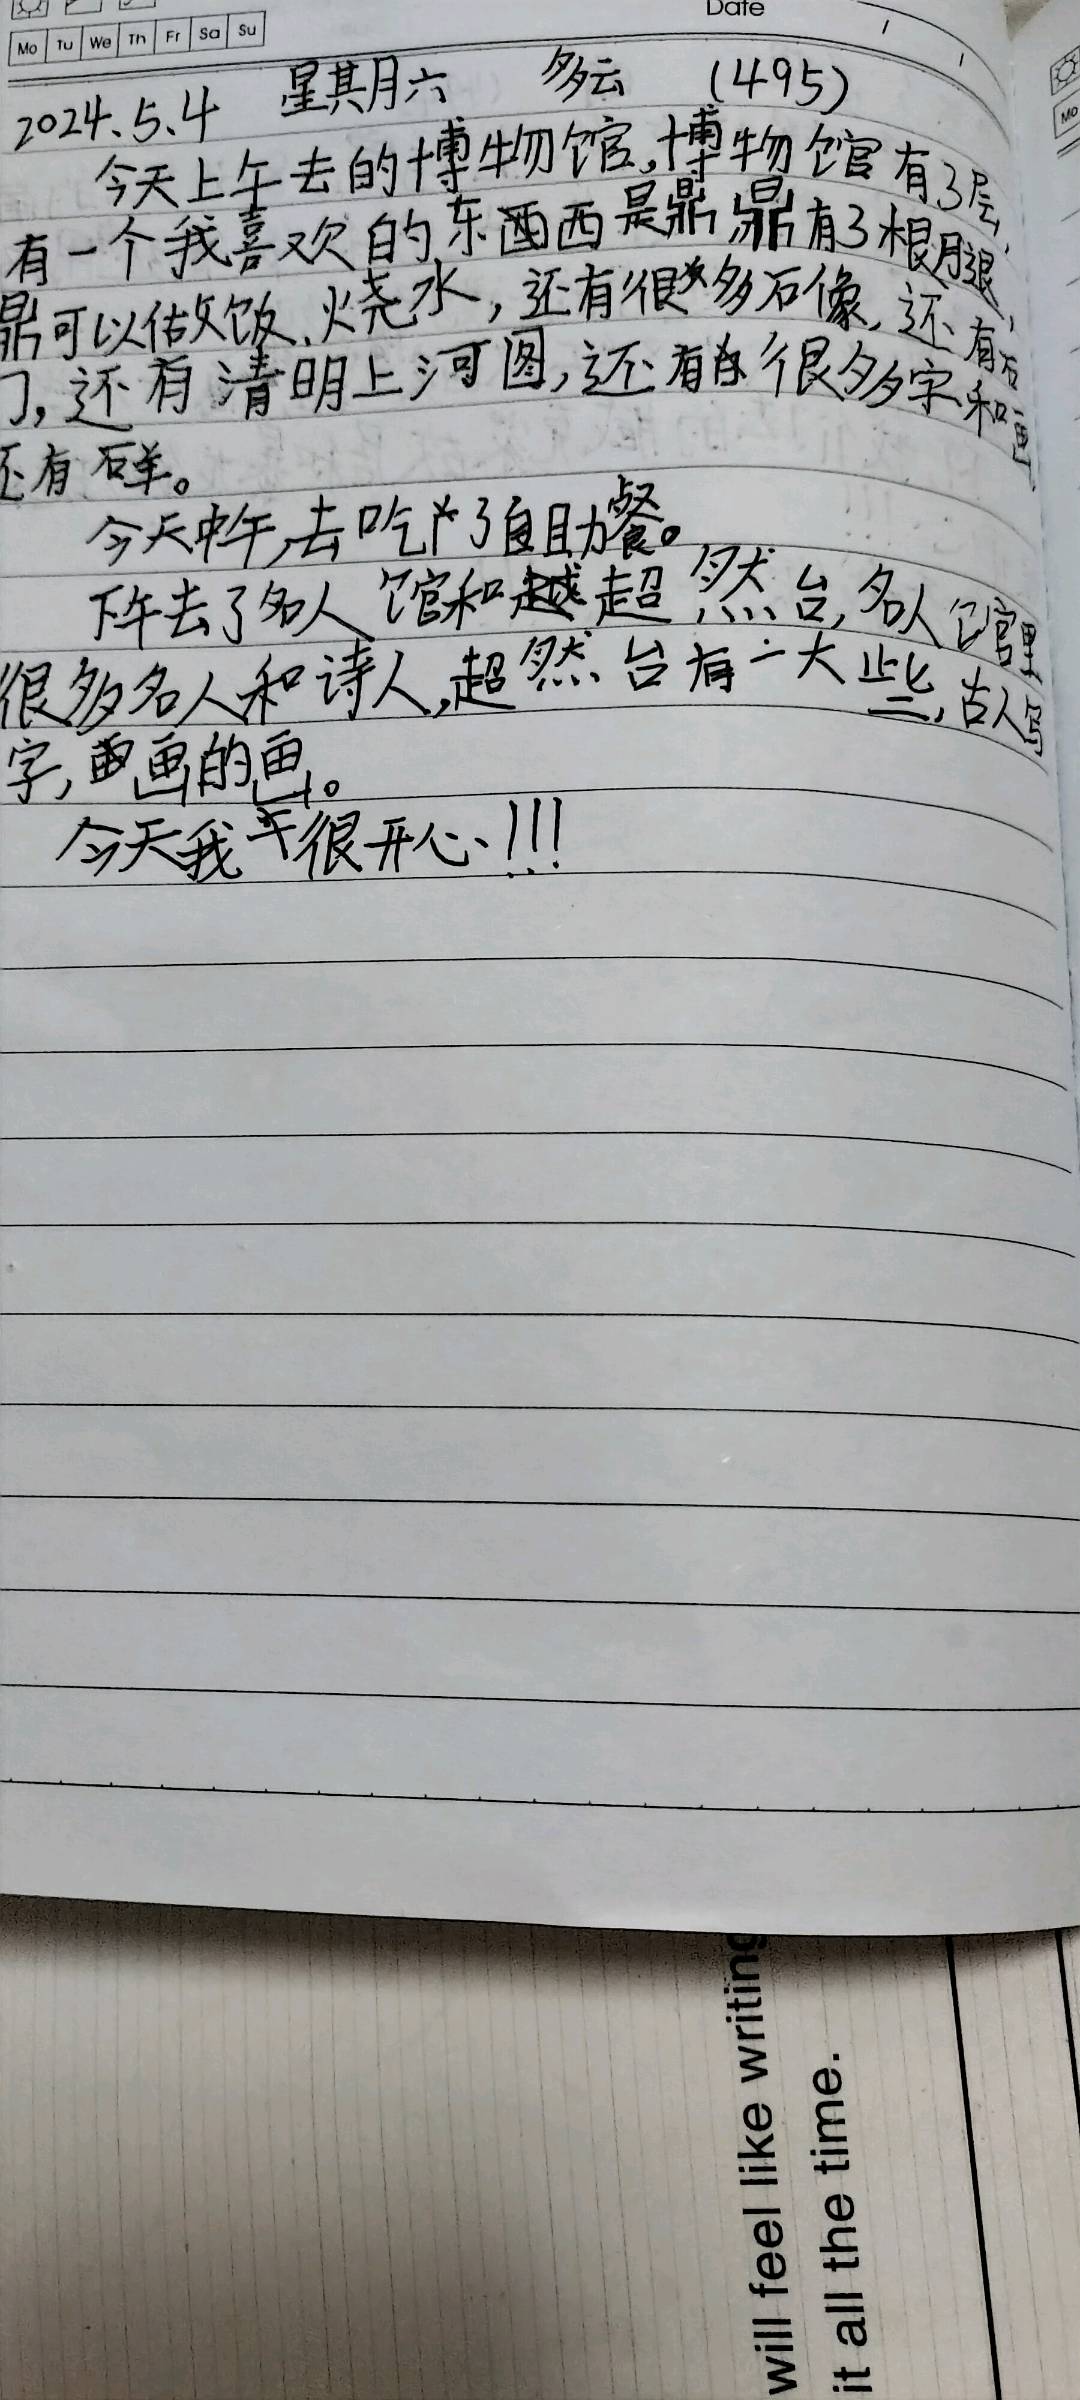 Date
Mo Tu We Th Fr Sa Su
Mo
2024.5.4 星其月六 多云 (495)
今天上午去的博物馆,博物馆有3层,
有一个我喜欢的东西是鼎,鼎有3根腿,
鼎可以做饭、烧水,还有很多石像,还有石
门,还有清明上河图,还有很多字和画,
还有石羊。
今天中午,去吃了自助餐。
下午去了名人馆和超然台,名人馆里
很多名人和诗人,超然台有一大些,古人写
字,画画的画。
今天我很开心!!!
will feel like writing
it all the time.